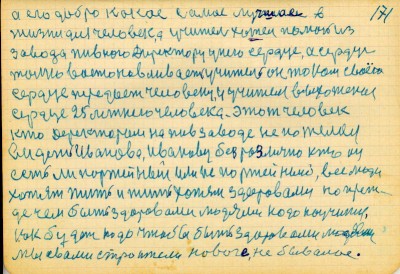 а его добро какое самое лучшее в 171
жизни для человека учител хочет помочь из
завода пивного Директору у него сердце, а сердце
только востонавливает учитель он током своего
сердце передает человеку, и учителя вложеное
сердце 25 летнего человека. Этот человек
кто деректором на пив заводе не пожелал
видеть Иванова, Иванову безразлично кто он
есть ли портейный или не портейный, все люди
хотят жить и жить хотят здоровами но преж
де чем быть здоровами людями надо научится,
как будет надо чтобы быть здоровами людями
мы свами строители новое, не бывалое.